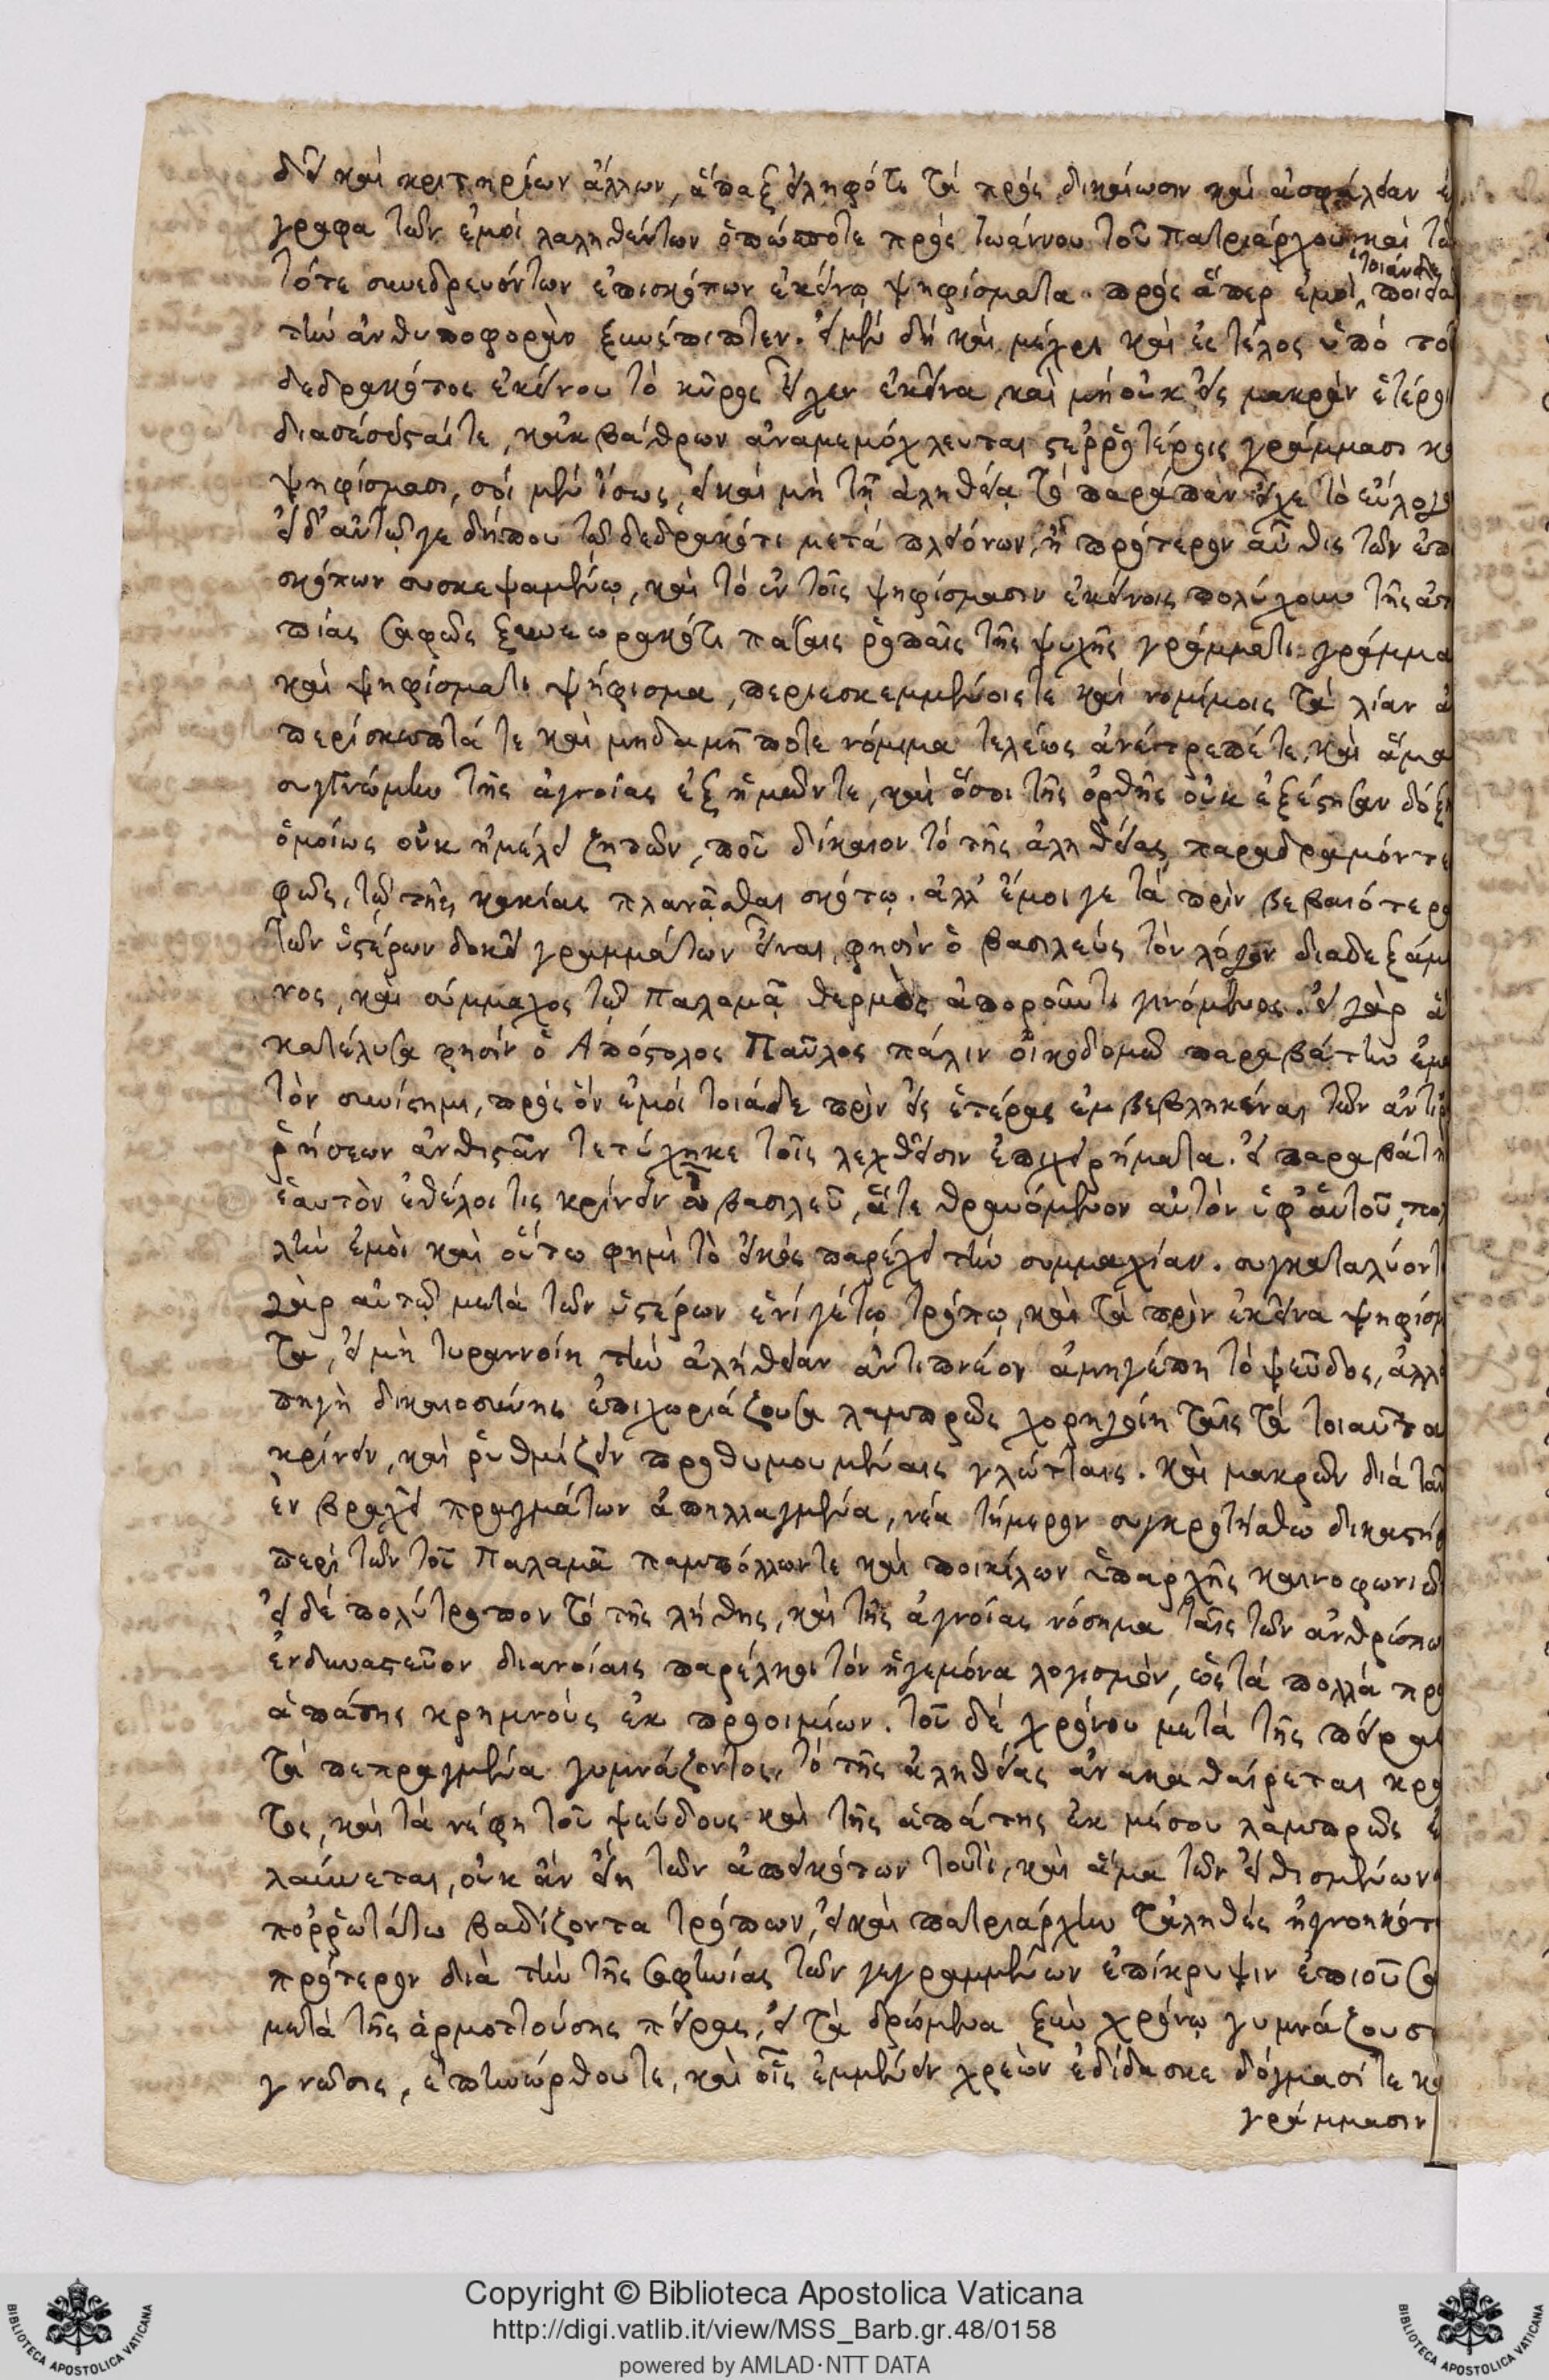 δεῖ καὶ κριτηρίων ἄλλων, ἅπαξ εἰληφότι τὰ πρὸς δικαίωσιν καὶ ἀσφάλειαν ἔ
γραφα τῶν ἐμοὶ λαληθέντων ὁπώποτε πρὸς Ἰωάννου τοῦ Πατριάρχου καὶ τῶ
τότε συνεδρευόντων ἐπισκόπων ἐκείνῳ ψηφίσματα. πρὸς ἅπερ ἐμοὶ τοιάνδε ποιεῖσ
τὴν ἀνθυποφορὰν ξυνέπιπτεν. εἰ μὲν δὴ καὶ μέχρι καὶ ἐς τέλος ὑπὸ τοῦ
δεδρακότος ἐκείνου τὸ κῦρος εἶχεν ἐκεῖνα, καὶ μὴ οὐκ εἰς μακρὰν ἑτέροι
διασέσεισταί τε, κἀκ βάθρων ἀναμεμόχλευται στεῤῥοτέροις γράμμασι κα
ψηφίσμασι, σοὶ μὲν ἴσως, εἰ καὶ μὴ τῇ ἀληθείᾳ τὸ παράπαν εἶχε τὸ εὔλογο
εἰ δ' αὐτῷ γε δήπου τῷ δεδρακότι μετὰ πλειόνων, ἢ πρότερον αὖθις τῶν ἐπι
σκόπων συσκεψαμένῳ, καὶ τὸ ἐν τοῖς ψηφίσμασιν ἐκείνοις πολύχουν τῆς ἀτο
πίας σαφῶς ξυνεωρακότι πάσαις ῥοπαῖς τῆς ψυχῆς γράμματι γράμμα
καὶ ψηφίσματι ψήφισμα, περιεσκεμμένοις τε καὶ νομίμοις τὰ λίαν ἀ
περίσκεπτά τε καὶ μηδαμῆ ποτε νόμιμα τελέως ἀνέτρεπέ τε, καὶ ἅμα
συγγνώμην τῆς ἀγνοίας ἐξ ἡμῶν τε, καὶ ὅσοι τῆς ὀρθῆς οὐκ ἐξέστησαν δόξη
ὁμοίως οὐκ ἠμέλει ζητῶν, ποῦ δίκαιον τὸ τῆς ἀληθείας παραδραμόντα
φῶς, τῷ τῆς κακίας πλανᾶσθαι σκότῳ. ἀλλ' ἔμοιγε τὰ πρὶν βεβαιότερα
τῶν ὑστέρων δοκεῖ γραμμάτων εἶναι, φησὶν ὁ βασιλεὺς τὸν λόγον διαδεξάμ
νος, καὶ σύμμαχος τῷ Παλαμᾷ θερμὸς ἀποροῦντι γινόμενος. εἰ γὰρ ἃ
κατέλυσα φησὶν ὁ Ἀπόστολος Παῦλος πάλιν οἰκοδομῶ παραβάτην ἐμα
τὸν συνίστημι, πρὸς ὃν ἐμοὶ τοιάδε πρὶν εἰς ἑτέρας ἐμβεβληκέναι τῶν ἀντιῤ
ῥήσεων ἀνθιστᾶν τετύχηκε τοῖς λεχθεῖσιν ἐπιχειρήματα. εἰ παραβάτη
ἑαυτὸν ἐθέλοι τις κρίνειν ὦ βασιλεῦ, ἅτε θραυόμενον αὐτὸν ὑφ' αὑτοῦ, πολ
λὴν ἐμοὶ καὶ οὕτω φημὶ τὸ εἰκὸς παρέχει τὴν συμμαχίαν. συγκαταλύοντι
γὰρ αὐτῷ μετὰ τῶν ὑστέρων ἑνί γέ τῳ τρόπῳ, καὶ τὰ πρὶν ἐκεῖνα ψηφίσμ
τα, εἰ μὴ τυραννοίη τὴν ἀλήθειαν ἀντιπνέον ἀμηγέπη τὸ ψεῦδος, ἀλλὰ
πηγὴ δικαιοσύνης ἐπιχωριάζουσα λαμπρῶς χορηγοίη ταῖς τὰ τοιαῦτα
κρίνειν, καὶ ῥυθμίζειν προθυμουμέναις γλώτταις. καὶ μακρῶν διὰ ταῦ
ἐν βραχεῖ πραγμάτων ἀπηλλαγμένα, νέα τήμερον συγκροτείσθω δικαστήρ
περὶ τῶν τοῦ Παλαμᾶ παμπόλλων τε καὶ ποικίλων ἐπαρχῆς καινοφωνιῶ
εἰ δὲ πολύτροπον τὸ τῆς λήθης, καὶ τῆς ἀγνοίας νόσημα ταῖς τῶν ἀνθρώπω
ἐνδυναστεῦον διανοίαις παρέλκει τὸν ἡγεμόνα λογισμὸν, ὡς τὰ πολλὰ πρὸ
ἀπάτης κρημνοὺς ἐκ προοιμίων. τοῦ δὲ χρόνου μετὰ τῆς πείρας
τὰ πεπραγμένα γυμνάζοντος, τὸ τῆς ἀληθείας ἀνακαθαίρεται κρά
τος, καὶ τὰ νέφη τοῦ ψεύδους καὶ τῆς ἀπάτης ἐκ μέσου λαμπρῶς ἐ
λαύνεται, οὐκ ἂν εἴη τῶν ἀπεικότων τουτὶ, καὶ ἅμα τῶν εἰθισμένων
ποῤῥωτάτω βαδίζοντα τρόπων, εἰ καὶ πατριάρχην τἀληθὲς ἠγνοηκότα
πρότερον διὰ τὴν τῆς σαφηνείας τῶν γεγραμμένων ἐπίκρυψιν ἐπιοῦσα
μετὰ τῆς ἁρμοττούσης πείρας, εἰ τὰ δρώμενα ξὺν χρόνῳ γυμνάζουσα
γνῶσις, ἐπηνώρθου τε, καὶ οἷς ἐμμένειν χρεὼν ἐδίδασκε δόγμασί τε κα
γράμμασιν
Copyright © Biblioteca Apostolica Vaticana
http://digi.vatlib.it/view/MSS_Barb.gr.48/0158
powered by AMLAD·NTT DATA
BIBLIOTECA APOSTOLICA VATICANA
BIBLIOTECA APOSTOLICA VATICANA